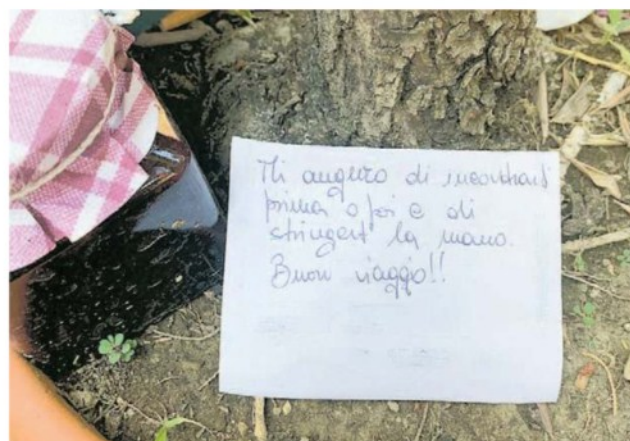 Mi auguro di incontrarti
prima o poi e di
stringerti la mano.
Buon viaggio!!